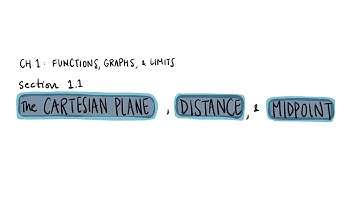 CH 1: FUNCTIONS, GRAPHS, & LIMITS
Section 1.1
The CARTESIAN PLANE, DISTANCE, & MIDPOINT